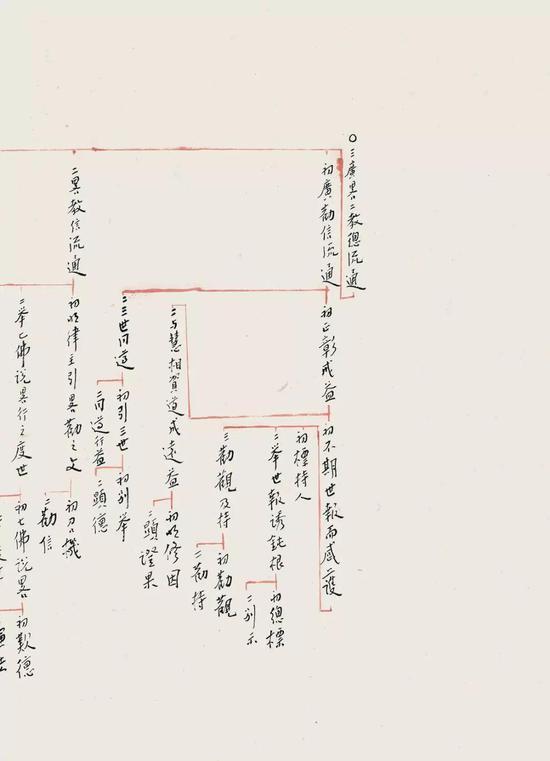 ○三廣畧二教總流通
初廣勸信流通
初正彰戒益
初不期世報而感二護
初標持人
二舉世報誘鈍根
初總標
二別示
三勸觀及持
初勸觀
二勸持
二与慧相資道成遠益
初明修因
二顕證果
二三世同道
初引三世
初別举
二顕德
二同道行益
二畧教信流通
初明律主引畧勸之文
初召機
二勸信
二举七佛说畧行之度世
初七佛说畧
初歎德